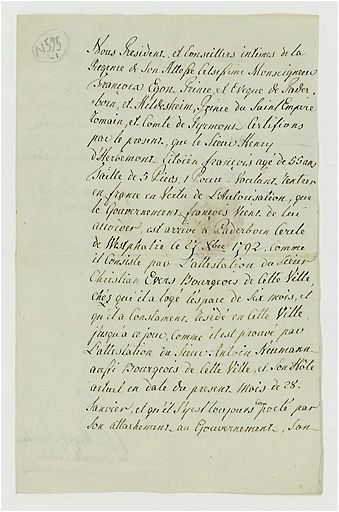 N595
Nous President, et Conseillers intimes de la
Regence de Son Altesse Celsissime Monseigneur
François Egon Prince, et Eveque de Pader-
born, et Hildesheim, Prince du Saint Empire
romain, et Comte de Pyrmont Certifions
par le present, que le Sieur Henry
d'Herbemont Citoïen françois age de 55 ans
Taille de 5 Pieds, 1 Pouce Voulant rentrer
en france en Vertu de L'Autorisation, que
le Gouvernement françois Vient de lui
accorder, est arrivé a Paderborn Cercle
de Westphalie le 27 Xbre 1792. comme
il Consiste par L'attestation du Sieur
Christian Evens Bourgeois de Cette Ville,
chés qui il a logé l'espace de Six mois, et
qu'il a Constament residé en Cette Ville
jusqu'a ce jour, Comme il est prouvé par
L'attestation du Sieur Antoin Neumann
aussi Bourgeois de Cette Ville, et Son Hôte
actuel en date du present Mois de 28.
Janvier, et qu'il S'y est toujours comporté par
Son attachement au Gouvernement, San-